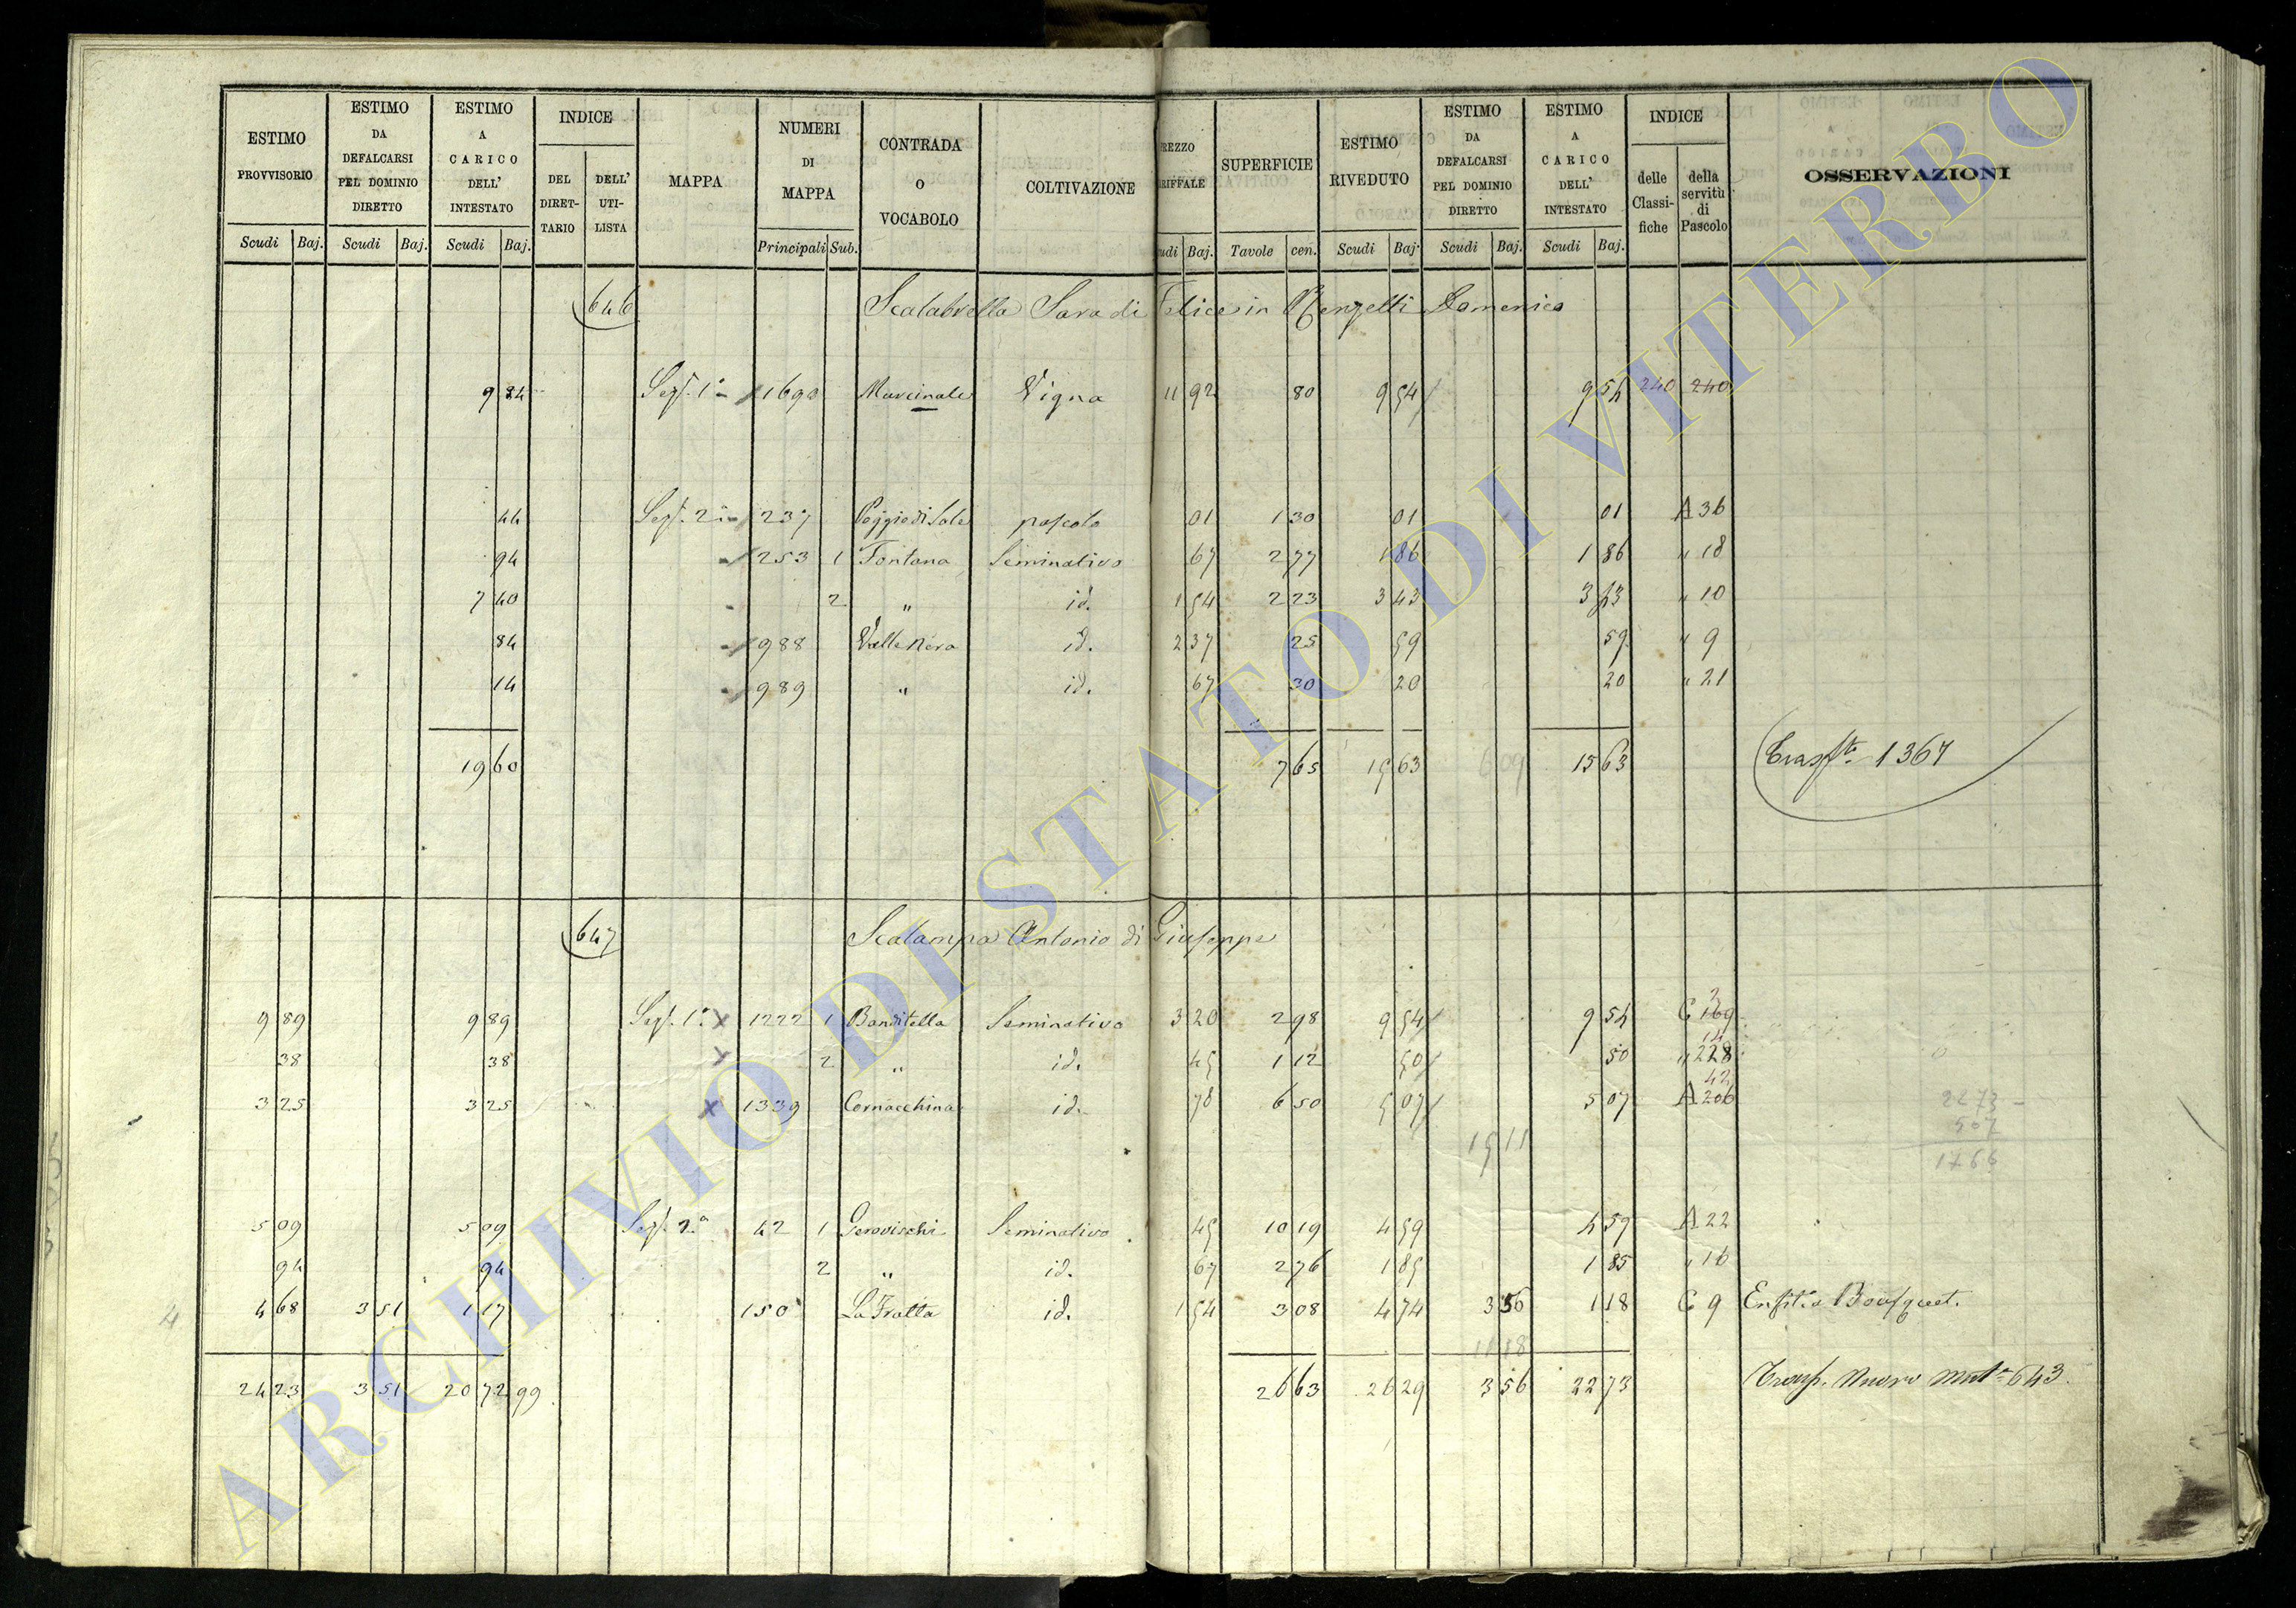 ESTIMO PROVVISORIO Scudi Baj.
ESTIMO DA DEFALCARSI PEL DOMINIO DIRETTO Scudi Baj.
ESTIMO A CARICO DELL' INTESTATO Scudi Baj.
INDICE DEL DIRET- TARIO DELL' UTI- LISTA
MAPPA
NUMERI DI MAPPA Principali Sub.
CONTRADA O VOCABOLO
COLTIVAZIONE
REZZO RIFFALE udi Baj.
SUPERFICIE Tavole cen.
ESTIMO RIVEDUTO Scudi Baj.
ESTIMO DA DEFALCARSI PEL DOMINIO DIRETTO Scudi Baj.
ESTIMO A CARICO DELL' INTESTATO Scudi Baj.
INDICE delle Classi- fiche della servitù di Pascolo
OSSERVAZIONI
646 Scalabrella Sara di Felice in Domenico
9 84 Sez. 1ª 1690 Vigna 11 92 80 9 54 9 54 240 240
44 Sez. 2ª 237 Poggio di Sole pascolo 01 1 30 01 01 A 36
94 253 1 Fontana Seminativo 67 2 77 1 86 1 86 " 18
7 40 2 " id. 1 54 2 23 3 43 3 43 " 10
84 988 Valle Nera id. 2 37 25 59 59 " 9
14 989 " id. 67 30 20 20 " 21
19 60 7 65 15 63 6 09 15 63 Trasfto 1367
647 Scalampa Antonio di Giuseppe
9 89 9 89 Sez. 1ª x 1222 1 Banditella Seminativo 3 20 2 98 9 54 9 54 C 169
38 38 x 2 " id. 45 1 12 50 50 " 228 14
3 25 3 25 x 1339 Cornacchina id. 78 6 50 5 07 5 07 A 206 42
15 11
2273
507
1766
5 09 5 09 Sez. 2ª 42 1 Seminativo 45 10 19 4 59 4 59 A 22
94 94 2 " id. 67 2 76 1 85 1 85 " 16
4 68 3 51 1 17 150 La Fratta id. 1 54 3 08 4 74 3 56 1 18 C 9
11 18
24 23 3 51 20 72 99 26 63 26 29 3 56 22 73 643.
4
ARCHIVIO DI STATO DI VITERBO